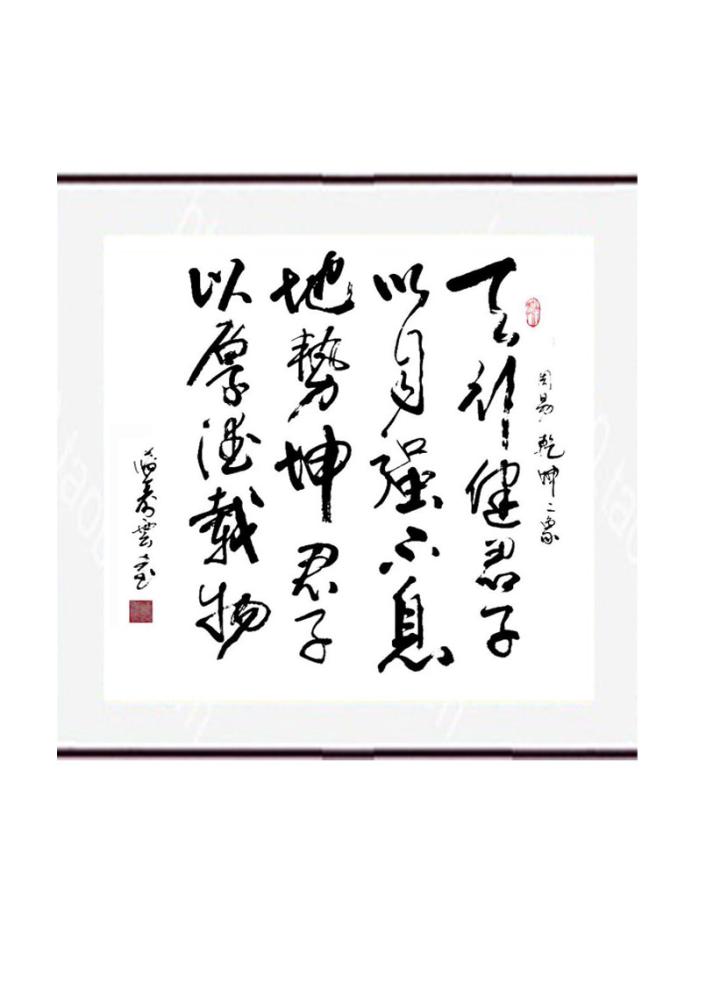 周易乾坤二象
天行健君子
以自强不息
地势坤君子
以厚德载物